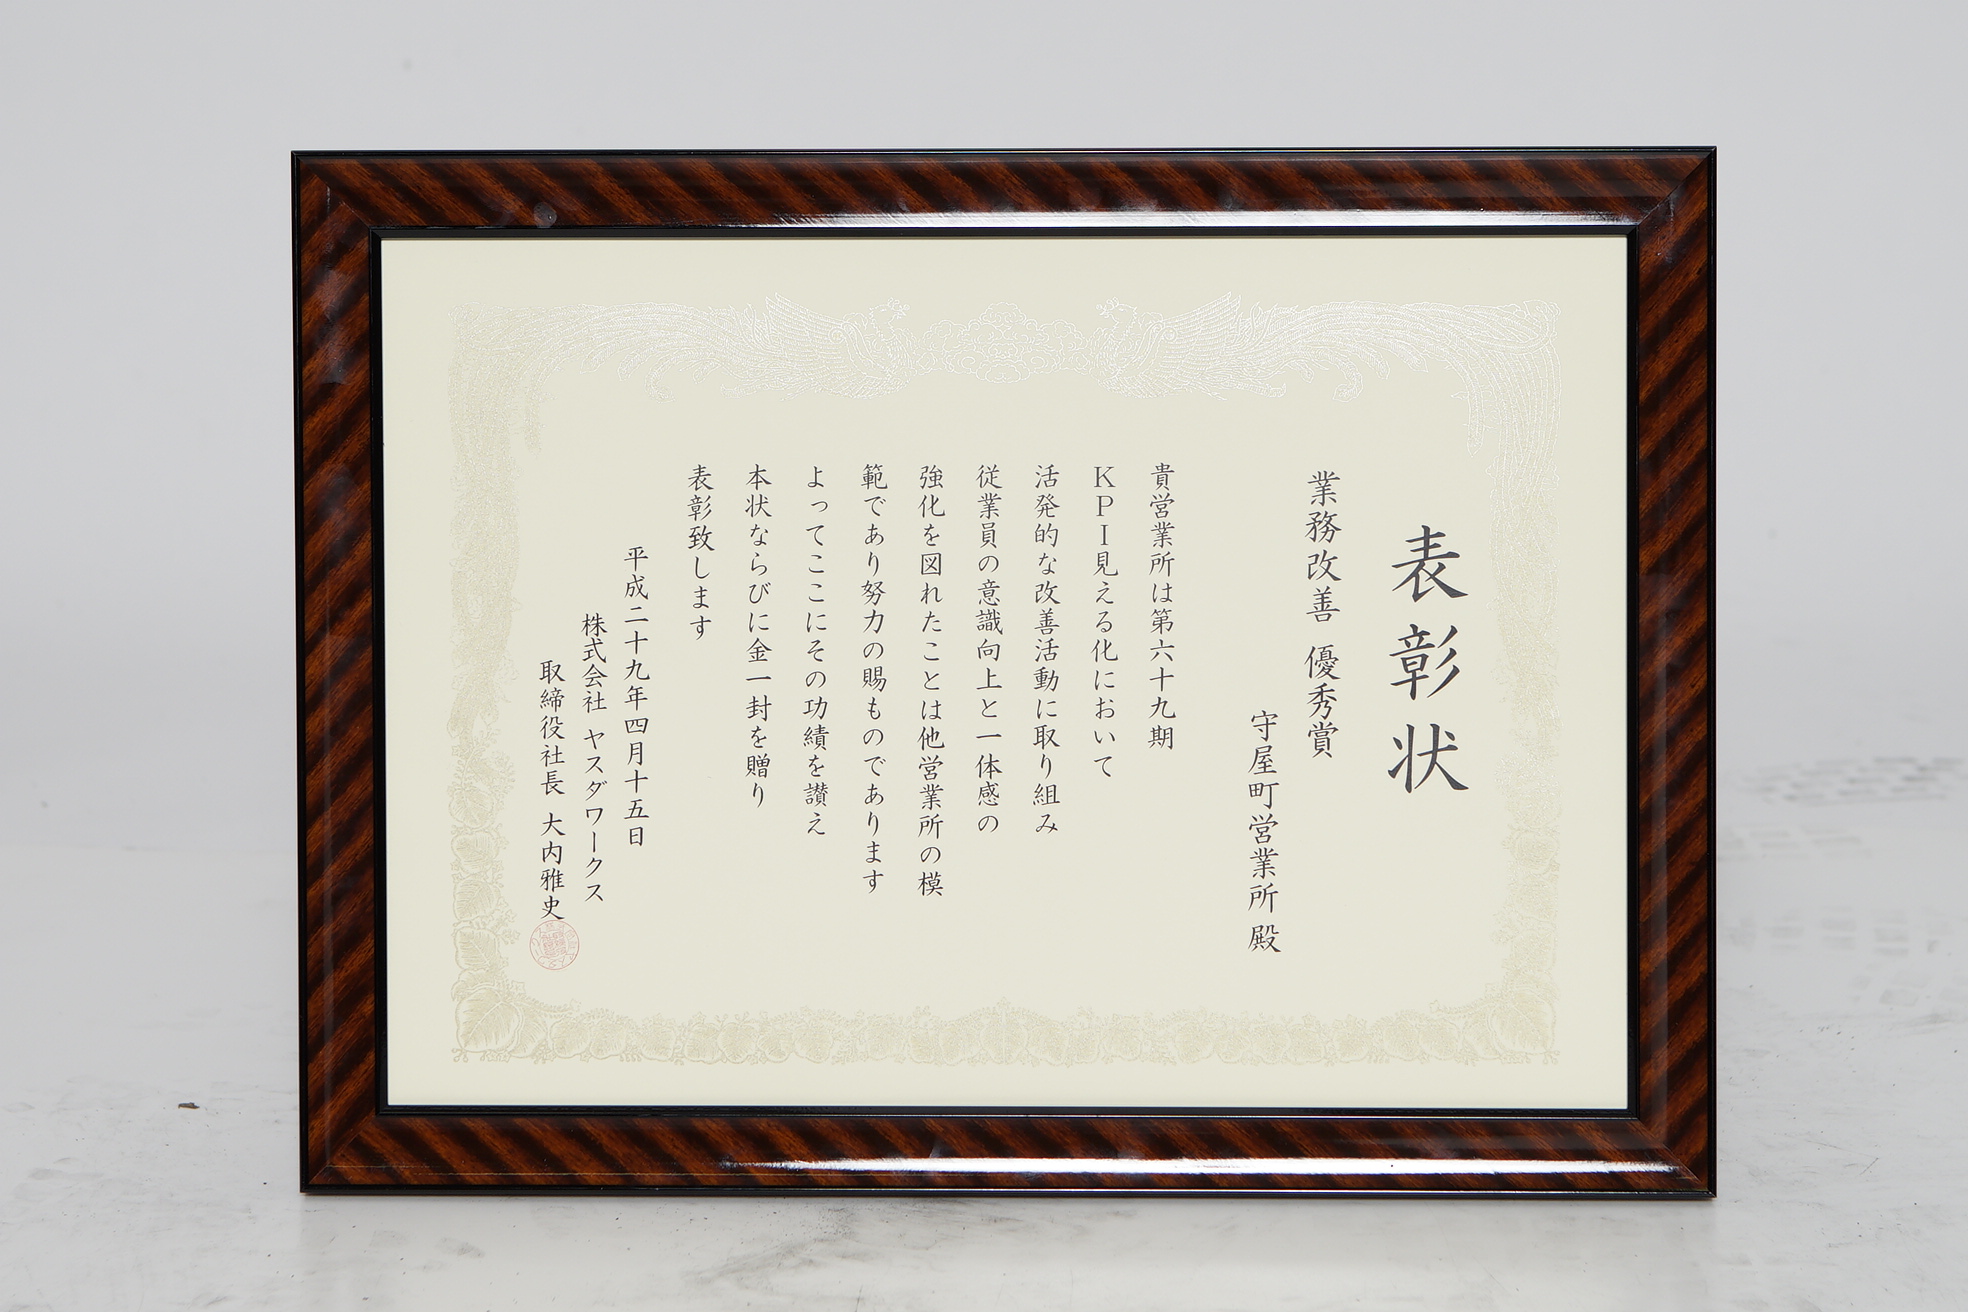 表彰状
業務改善 優秀賞
守屋町営業所 殿
貴営業所は第六十九期
KPI見える化において
活発的な改善活動に取り組み
従業員の意識向上と一体感の
強化を図れたことは他営業所の模
範であり努力の賜ものであります
よってここにその功績を讃え
本状ならびに金一封を贈り
表彰致します
平成二十九年四月十五日
株式会社 ヤスダワークス
取締役社長 大内雅史